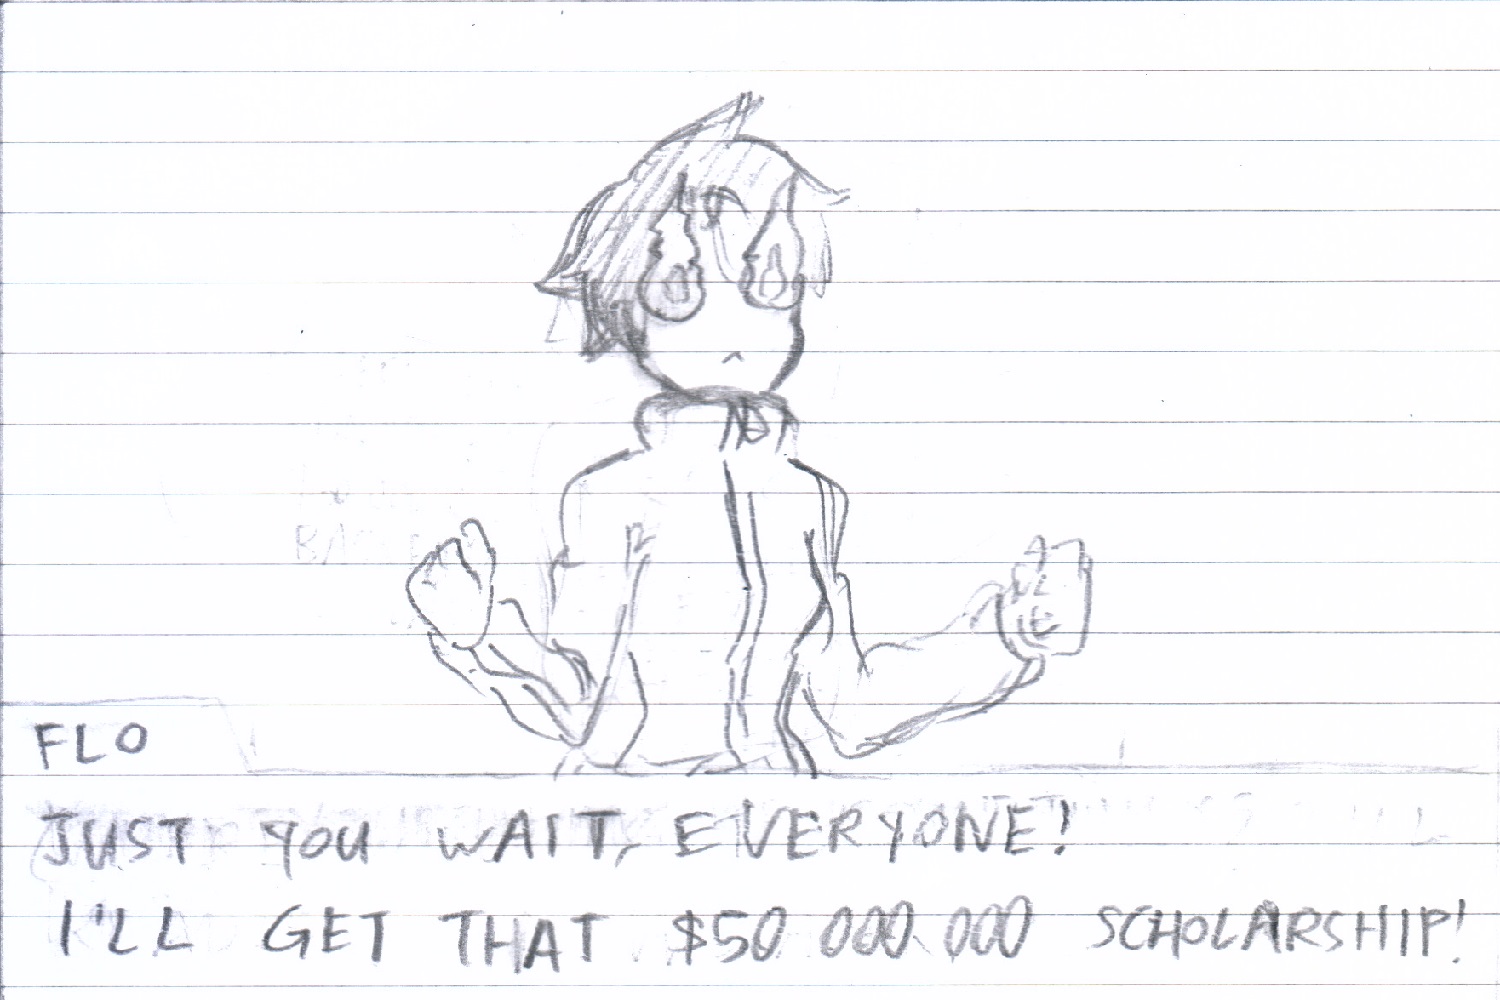 FLO
JUST YOU WAIT, EVERYONE!
I'LL GET THAT $50 000 000 SCHOLARSHIP!